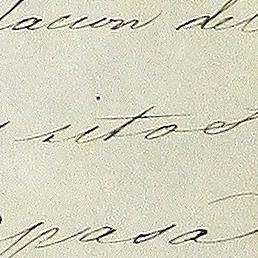 lacion del
sitos
pasa